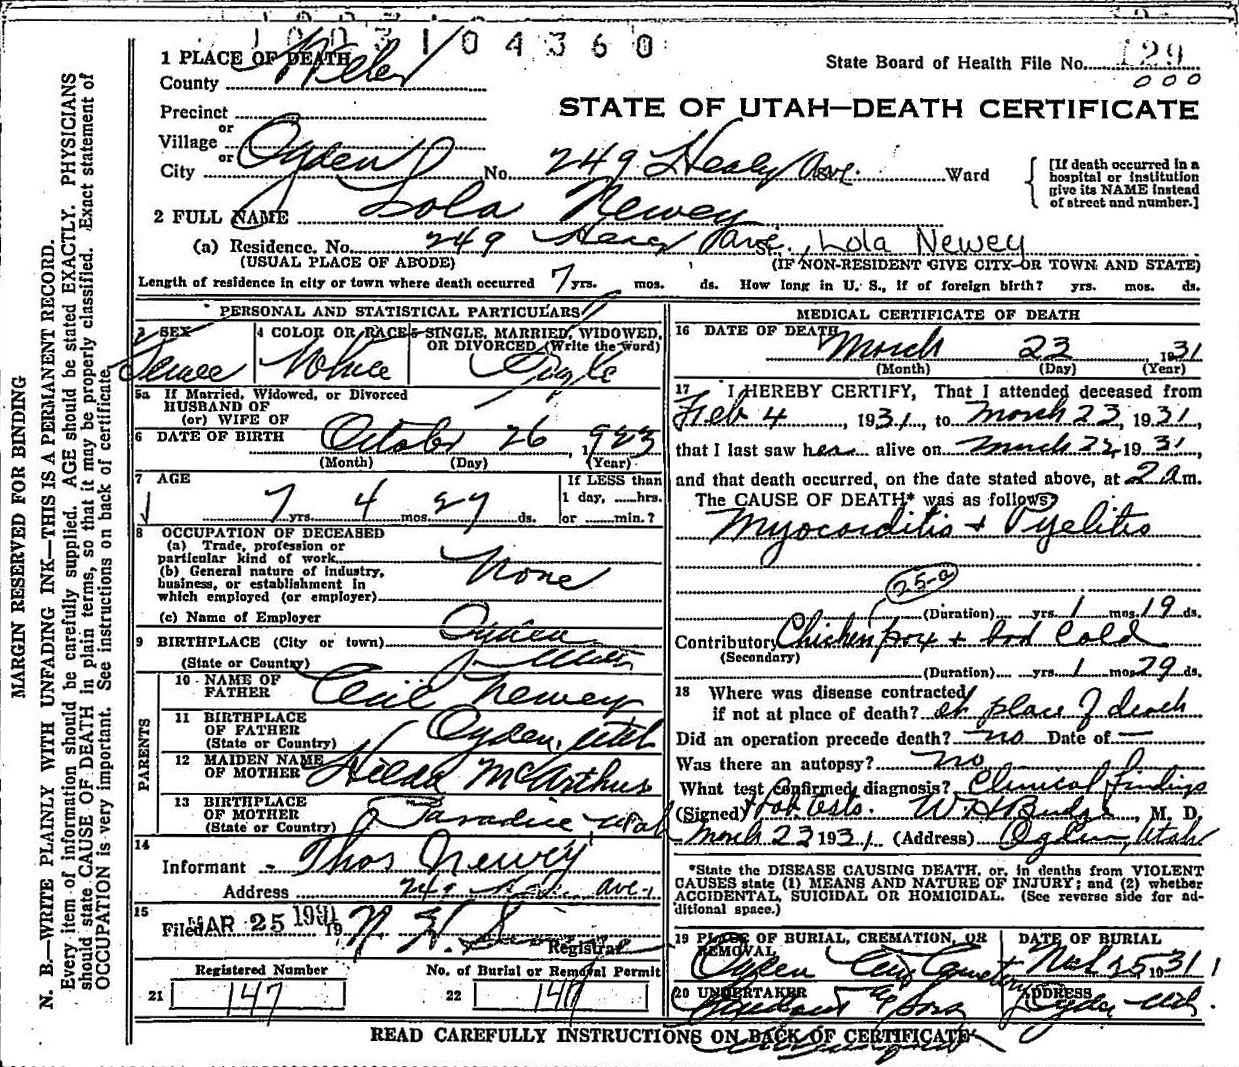 1003104360
1 PLACE OF DEATH
County Weber
State Board of Health File No. 129
000
STATE OF UTAH—DEATH CERTIFICATE
Precinct
or
Village
or
City Ogden No. 249 Healy Ave. Ward
[If death occurred in a
hospital or institution
give its NAME instead
of street and number.]
2 FULL NAME Lola Newey
(a) Residence. No. 249 Healy Ave., Lola Newey
(USUAL PLACE OF ABODE) (IF NON-RESIDENT GIVE CITY OR TOWN AND STATE)
Length of residence in city or town where death occurred 7 yrs. mos. ds. How long in U. S., if of foreign birth? yrs. mos. ds.
PERSONAL AND STATISTICAL PARTICULARS
3 SEX 4 COLOR OR RACE 5 SINGLE, MARRIED, WIDOWED,
OR DIVORCED (Write the word)
Female White Single
5a If Married, Widowed, or Divorced
HUSBAND OF
(or) WIFE OF
6 DATE OF BIRTH October 26, 1923
(Month) (Day) (Year)
7 AGE If LESS than
1 day, hrs.
7 yrs. 4 mos. 27 ds. or min.?
8 OCCUPATION OF DECEASED
(a) Trade, profession or
particular kind of work None
(b) General nature of industry,
business, or establishment in
which employed (or employer)
(c) Name of Employer
9 BIRTHPLACE (City or town) Ogden
(State or Country) Utah
PARENTS
10 NAME OF
FATHER Cecil Newey
11 BIRTHPLACE
OF FATHER
(State or Country) Ogden, Utah
12 MAIDEN NAME
OF MOTHER Hilda McArthur
13 BIRTHPLACE
OF MOTHER
(State or Country) Paradise, Utah
14
Informant - Thos Newey
Address 249 Ave.
15
Filed MAR 25 1931 19
Registrar
Registered Number No. of Burial or Removal Permit
21 147 22
MEDICAL CERTIFICATE OF DEATH
16 DATE OF DEATH
March 23 1931
(Month) (Day) (Year)
17 I HEREBY CERTIFY, That I attended deceased from
Feb 4, 1931, to March 23, 1931,
that I last saw her alive on March 22, 1931,
and that death occurred, on the date stated above, at 2 a m.
The CAUSE OF DEATH* was as follows?
Myocarditis + Pyelitis
25-a
(Duration) yrs. 1 mos. 19 ds.
Contributory Chicken pox + bad cold
(Secondary)
(Duration) yrs. 1 mos. 29 ds.
18 Where was disease contracted
if not at place of death? at place of death
Did an operation precede death? no Date of —
Was there an autopsy? no
What test confirmed diagnosis? Clinical findings
(Signed) + Lab tests. W H Budge, M. D.
March 23 1931. (Address) Ogden, Utah
*State the DISEASE CAUSING DEATH, or, in deaths from VIOLENT
CAUSES state (1) MEANS AND NATURE OF INJURY; and (2) whether
ACCIDENTAL, SUICIDAL OR HOMICIDAL. (See reverse side for ad-
ditional space.)
19 PLACE OF BURIAL, CREMATION, OR
REMOVAL
Ogden City Cemetery
DATE OF BURIAL
25 1931
20 UNDERTAKER
& Sons
ADDRESS
Ogden Utah.
READ CAREFULLY INSTRUCTIONS ON BACK OF CERTIFICATE
MARGIN RESERVED FOR BINDING
N. B.—WRITE PLAINLY WITH UNFADING INK—THIS IS A PERMANENT RECORD.
Every item of information should be carefully supplied. AGE should be stated EXACTLY. PHYSICIANS
should state CAUSE OF DEATH in plain terms, so that it may be properly classified. Exact statement of
OCCUPATION is very important. See instructions on back of certificate.